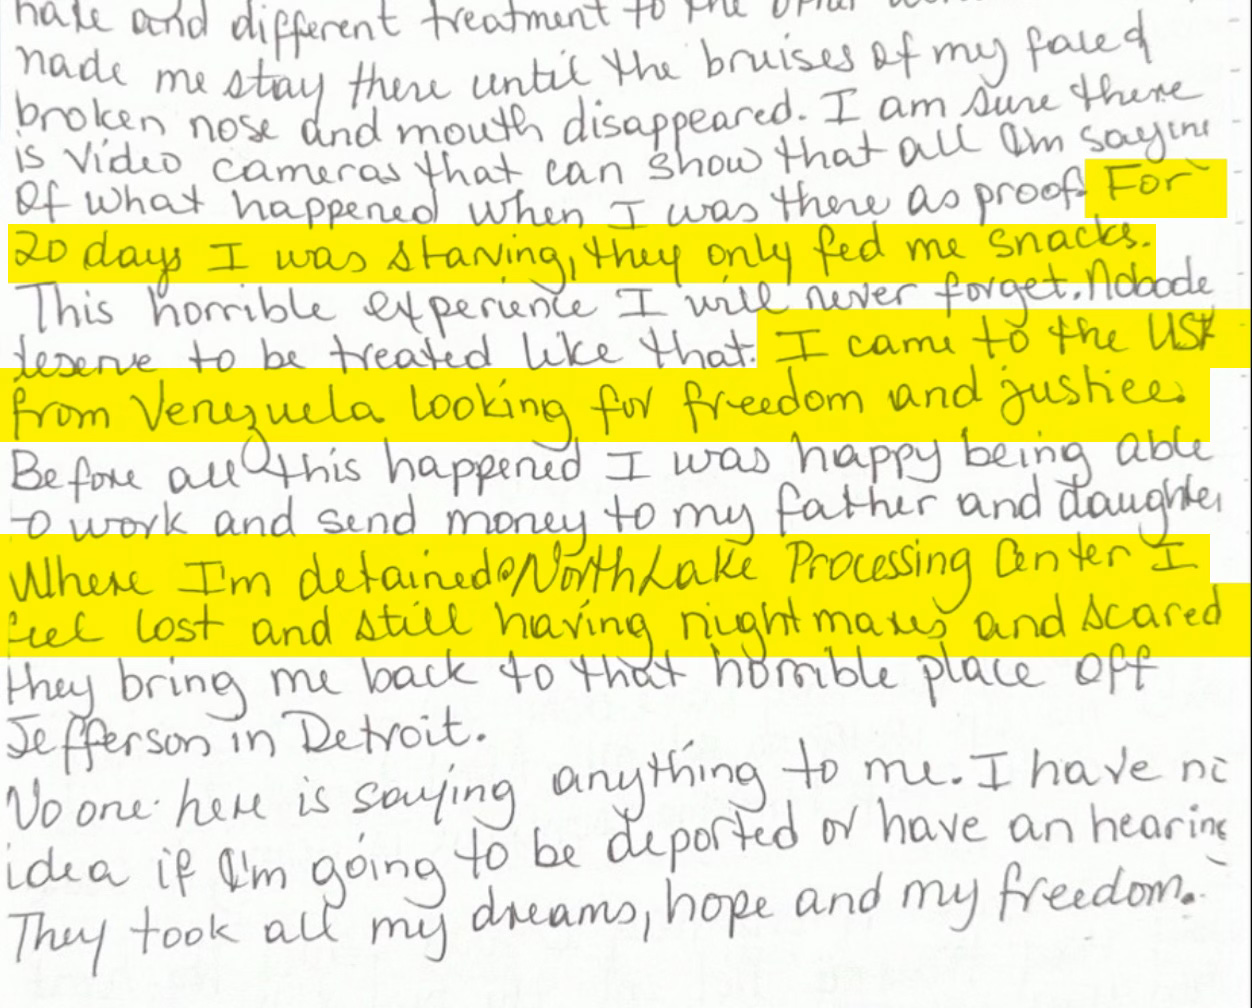 hate and different treatment to the other
made me stay there until the bruises of my face d
broken nose and mouth disappeared. I am sure there
is video cameras that can show that all I'm saying
of what happened when I was there as proof. For
20 days I was starving, they only fed me snacks.
This horrible experience I will never forget. Nobode
deserve to be treated like that. I came to the USA
from Venezuela looking for freedom and justice.
Before all this happened I was happy being able
to work and send money to my father and daughter
Where I'm detained NorthLake Processing Center I
feel lost and still having nightmares and scared
they bring me back to that horrible place off
Jefferson in Detroit.
No one here is saying anything to me. I have no
idea if I'm going to be deported or have an hearing
They took all my dreams, hope and my freedom.